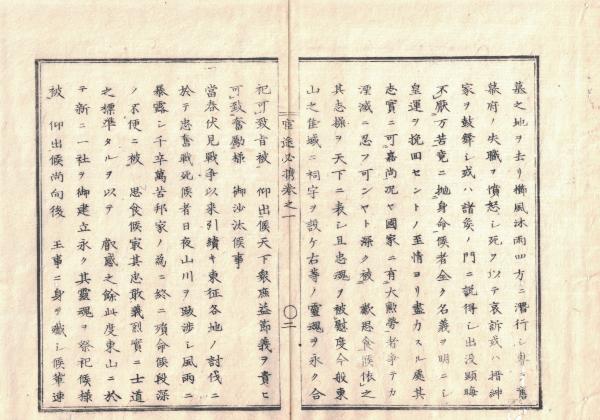 墓之地ヲ去リ櫛風沐雨四方ニ潜行シ専ラ舊
幕府ノ失職ヲ憤怒シ死ヲ以テ哀訴或ハ搢紳
家ヲ鼓舞シ或ハ諸矦ノ門ニ説得シ出没顕晦
不厭万苦竟ニ抛身命候者全ク名義ヲ明ニシ
皇運ヲ挽回セントノ至情ヨリ盡力スル處其
志實ニ可嘉尚况ヤ國家ニ有大勲労者争テカ
湮滅ニ忍フ可ンヤト深ク被　歎思食候依之
其志操ヲ天下ニ表シ且忠魂ヲ被慰度今般東
山之佳域ニ祠宇ヲ設ケ右等ノ霊魂ヲ永ク合
官途必携巻之一
〇二
祀可致旨被　仰出候天下衆庶益節義ヲ貴ヒ
可致奮勵様　御沙汰候事
一　當春伏見戦争以来引續キ東征各地ノ討伐ニ
於テ忠奮戦死候者日夜山川ヲ跋渉シ風雨ニ
暴露シ千辛萬苦邦家ノ為ニ終ニ殞命候段深
ク不便ニ被　思食候㝡其忠敢義烈實ニ士道
之標準タルヲ以テ　叡感之餘此度東山ニ於
テ新ニ一社ヲ御建立永ク其靈魂ヲ祭祀候様
被　仰出候尚向後　王事ニ身ヲ殲シ候輩速